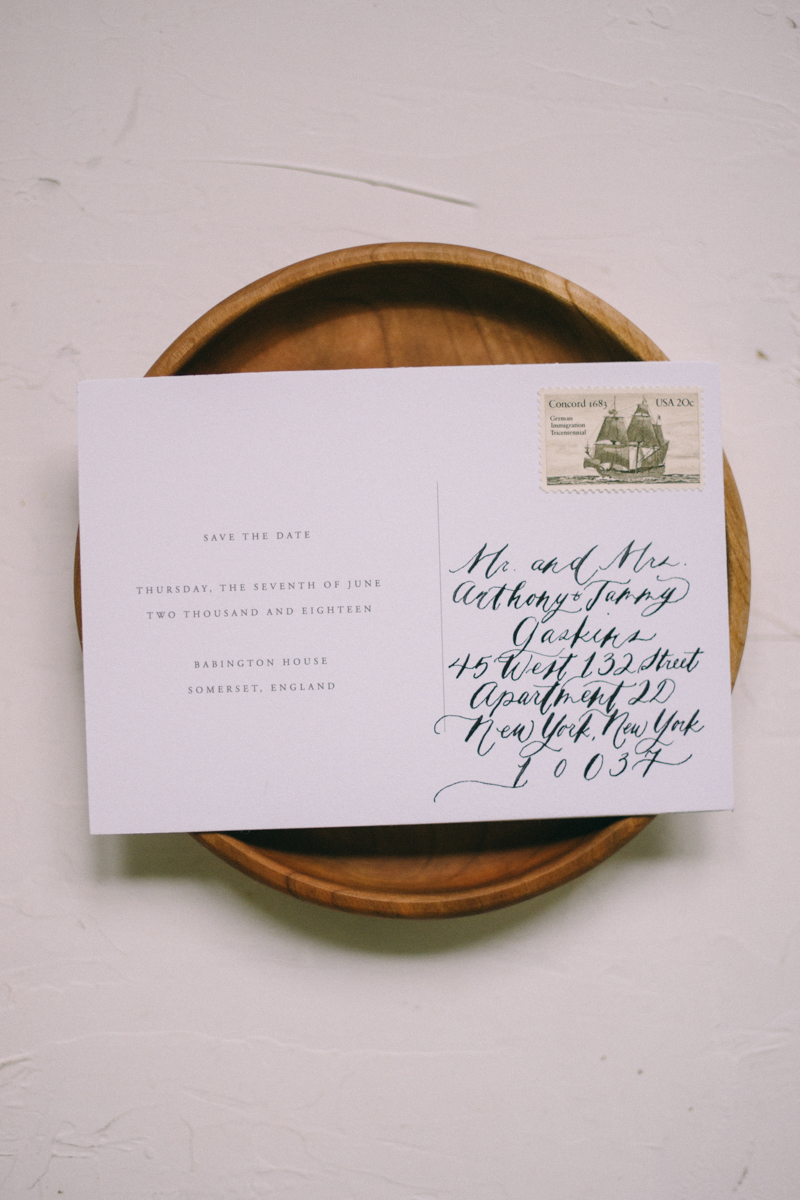 Concord 1683 USA 20c
German
Immigration
Tricentennial
SAVE THE DATE
THURSDAY, THE SEVENTH OF JUNE
TWO THOUSAND AND EIGHTEEN
BABINGTON HOUSE
SOMERSET, ENGLAND
Mr. and Mrs.
Anthony & Tammy
Gaskins
45 West 132 Street
Apartment 2D
New York, New York
10037